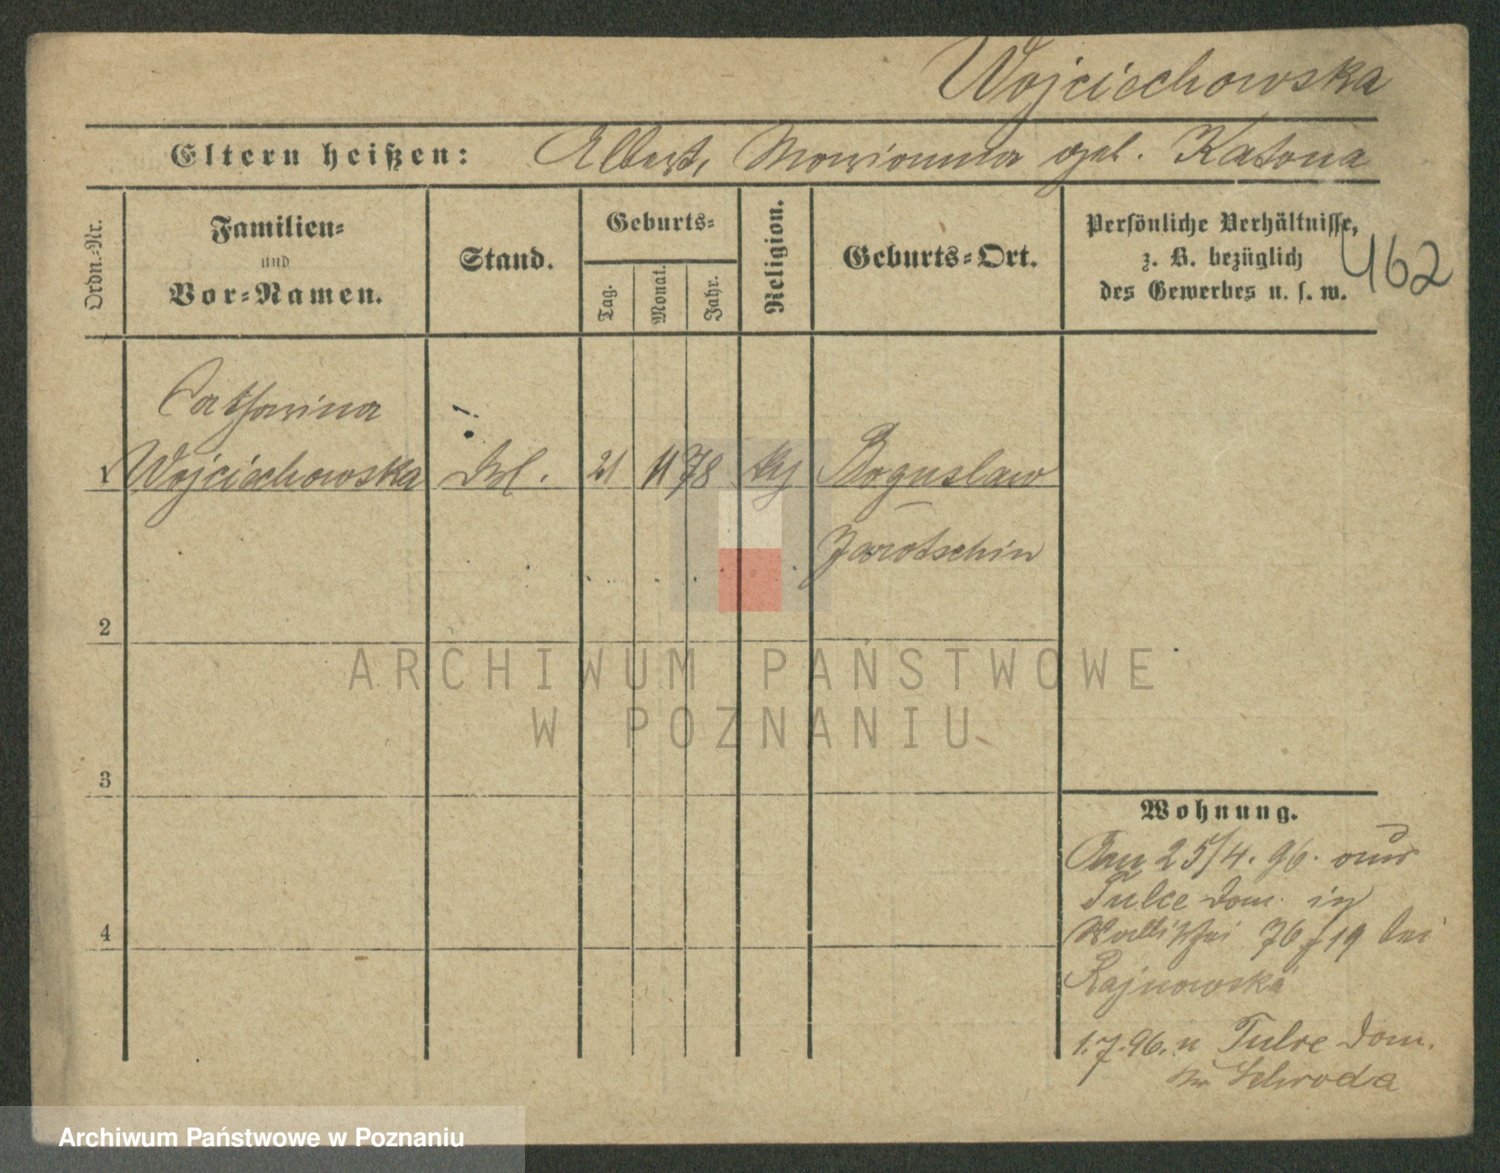 Wojciechowska
Eltern heißen: Albert, Marianna geb. Katona
Ordn.-Nr.
Familien-
und
Vor-Namen.
Stand.
Geburts-
Tag.
Monat.
Jahr.
Religion.
Geburts-Ort.
Persönliche Verhältnisse,
z. B. bezüglich
des Gewerbes u. s. w.
462
Catharina
1 Wojciechowska 21 11 78 Boguslaw
Jarotschin
2
3
4
ARCHIWUM PAŃSTWOWE
W POZNANIU
Wohnung.
Am 25/4. 96. aus
Tulce Dom. in
Wallischei 76/19 bei
Rajnowska
1.7.96. n Tulce Dom.
Kr Schroda
Archiwum Państwowe w Poznaniu